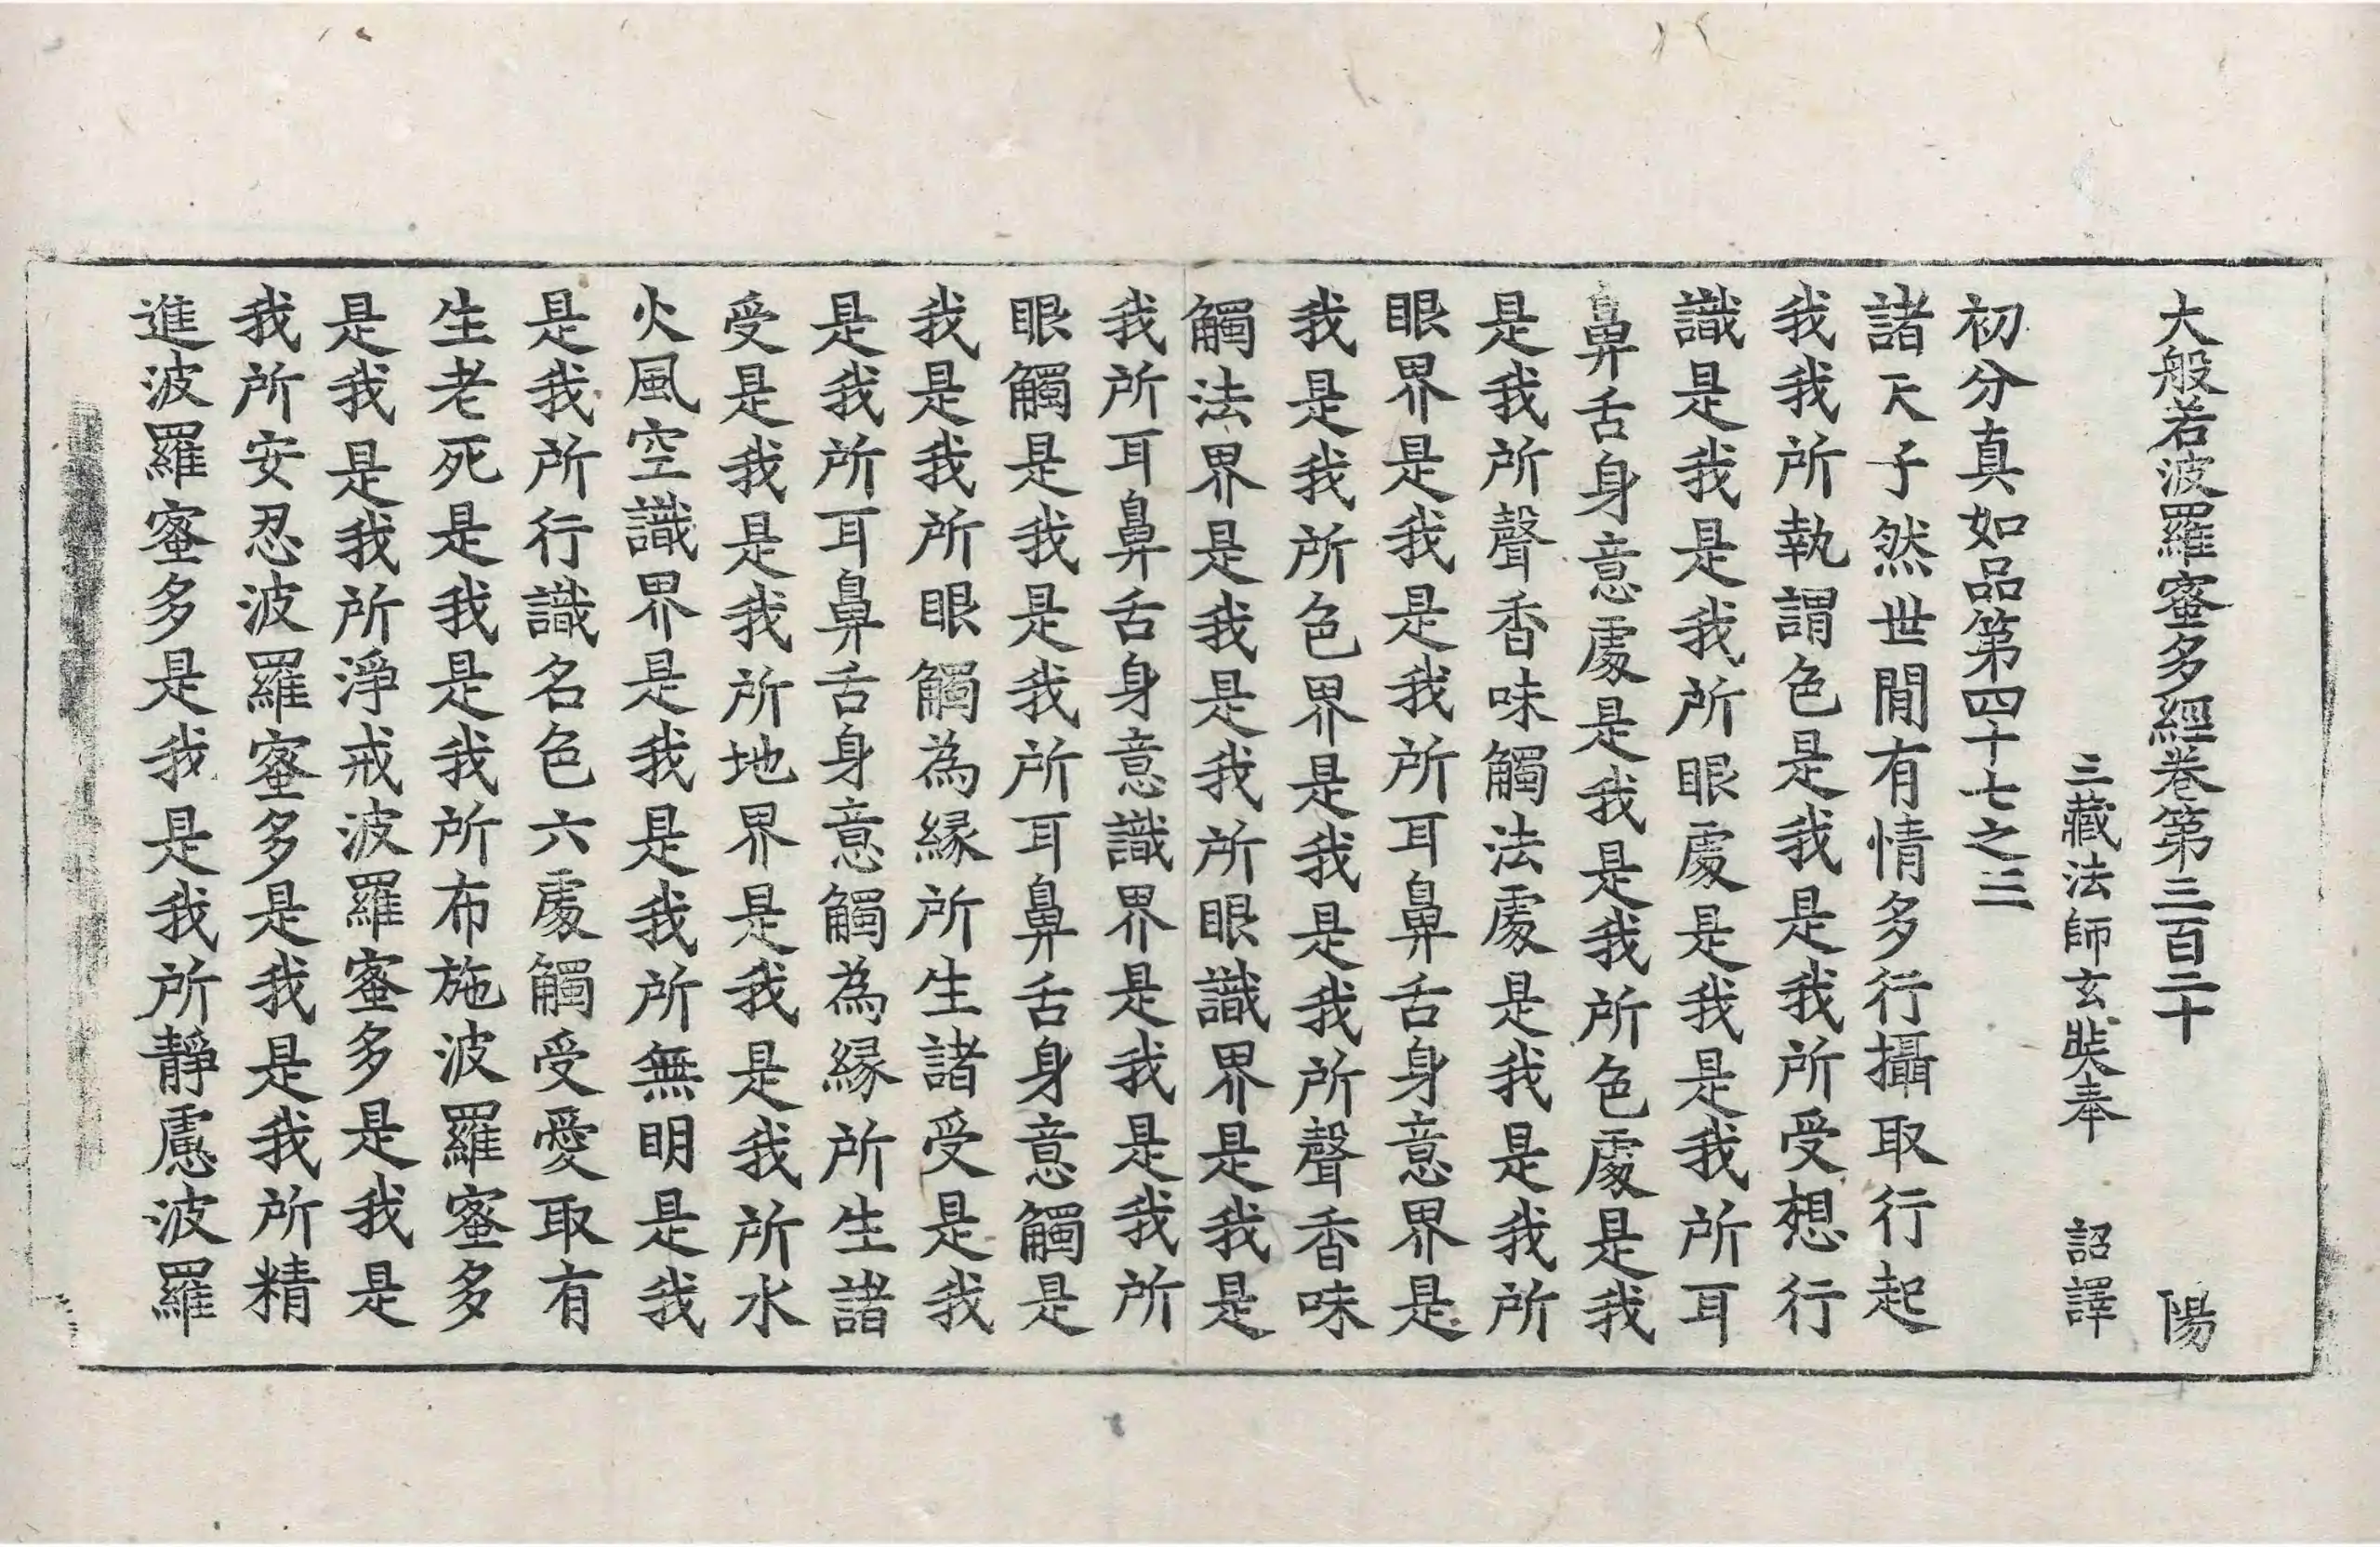 大般若波羅蜜多經卷第三百二十　陽
三藏法師玄奘奉　詔譯
初分真如品第四十七之三
諸天子然世間有情多行攝取行起
我我所執謂色是我是我所受想行
識是我是我所眼處是我是我所耳
鼻舌身意處是我是我所色處是我
是我所聲香味觸法處是我是我所
眼界是我是我所耳鼻舌身意界是
我是我所色界是我是我所聲香味
觸法界是我是我所眼識界是我是
我所耳鼻舌身意識界是我是我所
眼觸是我是我所耳鼻舌身意觸是
我是我所眼觸為緣所生諸受是我
是我所耳鼻舌身意觸為緣所生諸
受是我是我所地界是我是我所水
火風空識界是我是我所無明是我
是我所行識名色六處觸受愛取有
生老死是我是我所布施波羅蜜多
是我是我所淨戒波羅蜜多是我是
我所安忍波羅蜜多是我是我所精
進波羅蜜多是我是我所靜慮波羅